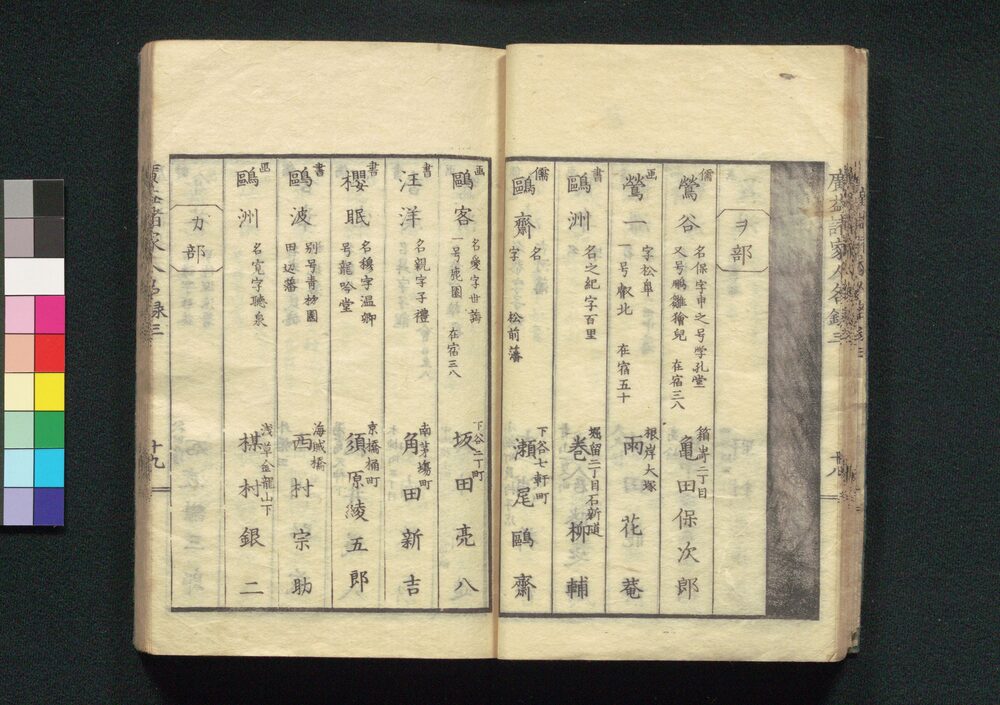 ヲ部
儒
鶯谷
名保字申之号学孔堂
又号鵬雛獪兒 在宿三八
箱崎二丁目
亀田保次郎
画
鶯一
字松阜
一号叡北 在宿五十
根岸大塚
雨花菴
書
鷗洲
名之紀字百里
堀留二丁目石新道
巻柳輔
儒
鷗齋
名
字 松前藩
下谷七軒町
瀬尾鷗齋
画
鷗客
一号鹿園 在宿三八
下谷二丁町
坂田亮八
書
汪洋
名親字子禮
南茅場町
角田新吉
書
櫻眠
名穆字温卿
号龍吟堂
京橋桶町
須原綾五郎
書
鷗波
别号青松園
田辺藩
海賊橋
西村宗助
画
鷗洲
名寛字聴泉
浅草金龍山下
棋村銀二
カ部
十九